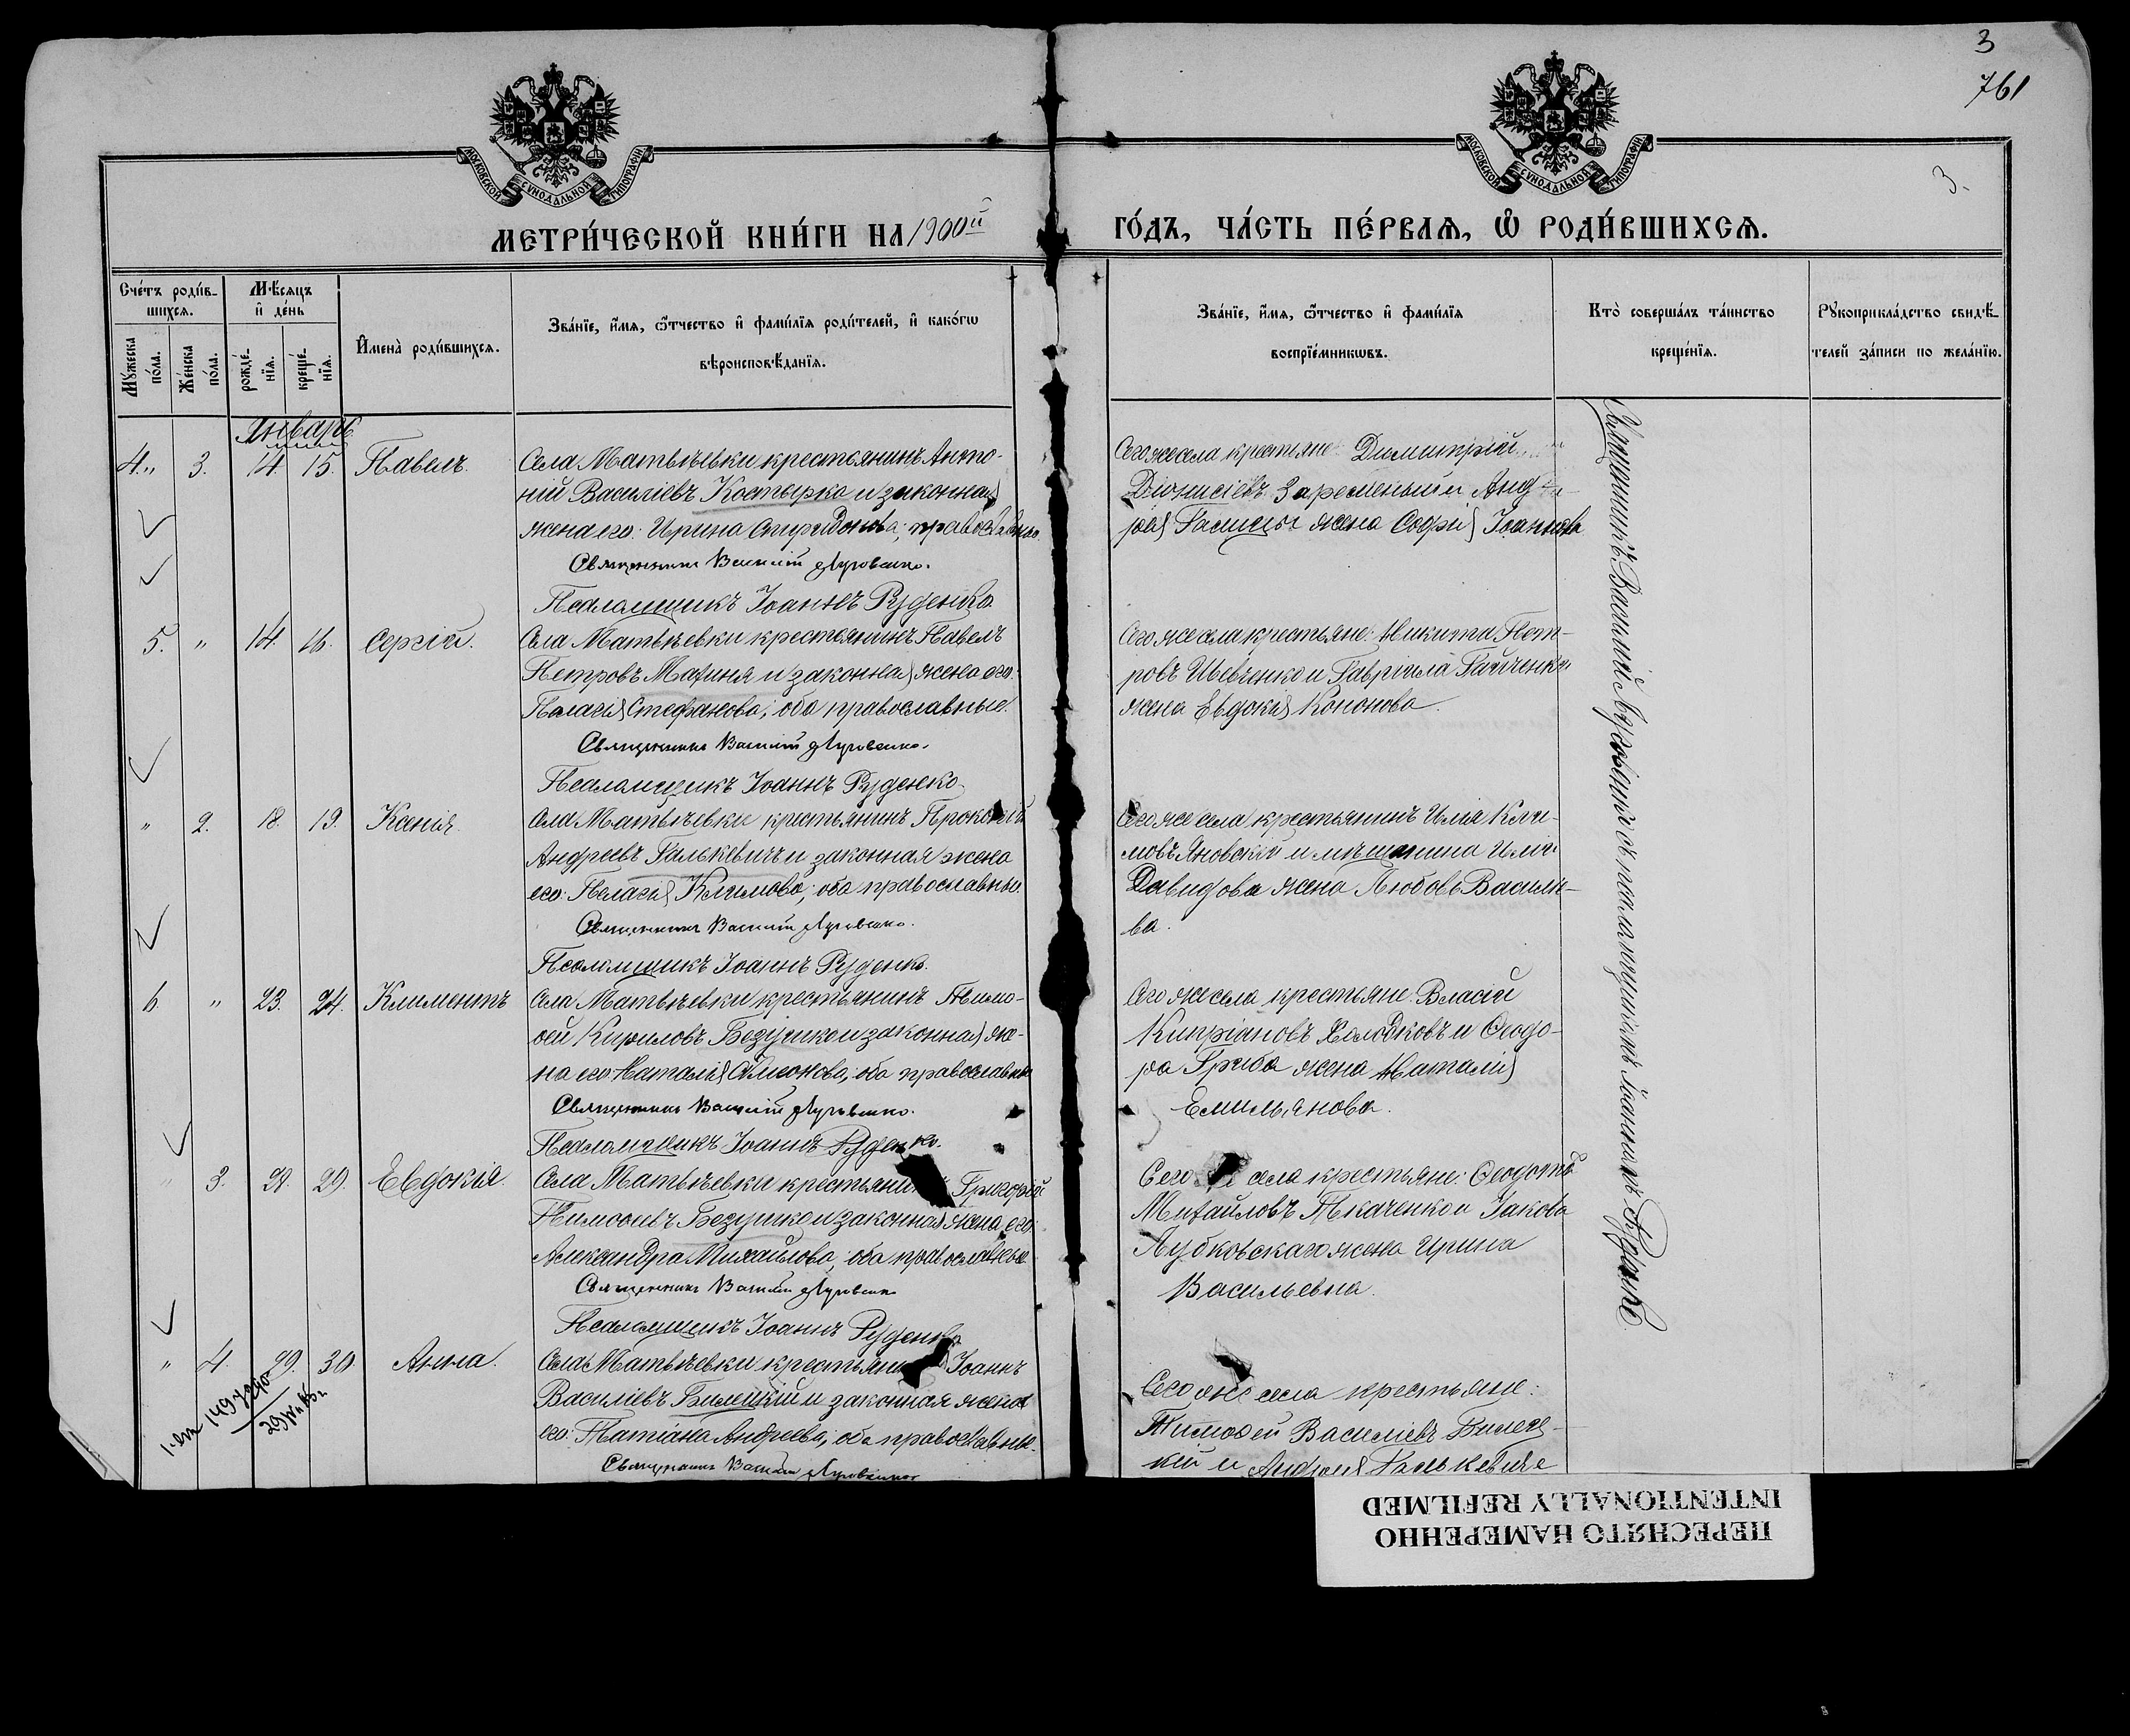 3
761
3.
МОСКОВСКОЙ СѴНОДАЛЬНОЙ ТИПОГРАФІИ
МОСКОВСКОЙ СѴНОДАЛЬНОЙ ТИПОГРАФІИ
МЕТРИ́ЧЕСКОЙ КНИ́ГИ НА 1900й
ГО́ДЪ, ЧА́СТЬ ПЕ́РВАѦ, Ѡ҆ РОДИ́ВШИХСѦ.
Сче́тъ роди́в-
шихсѧ.
Мѣ́сѧцъ
и҆ де́нь
Мꙋ́жеска
по́ла.
Же́нска
по́ла.
рожде́-
нїѧ.
креще́-
нїѧ.
И҆мена̀ роди́вшихсѧ.
Зва́нїе, и҆́мѧ, ѻ҆́тчество и҆ фами́лїѧ роди́телей, и҆ како́гѡ
вѣроисповѣ́данїѧ.
Зва́нїе, и҆́мѧ, ѻ҆́тчество и҆ фами́лїѧ
воспрїе́мникѡвъ.
Кто̀ соверша́лъ та́инство
креще́нїѧ.
Рꙋкоприкла́дство свидѣ́-
телей за́писи по жела́нїю.
Январь
4. " 3. 14. 15. Павелъ.
Села Матвѣевки крестьянинъ Анто-
ній Василіевъ Костырко и законная
жена его: Ирина Спиридонова; православные.
Священникъ Василій Луговенко.
Псаломщикъ Іоаннъ Руденко.
Сего же села крестьяне: Димитрій
Діонисіевъ и Анд-
рея Галицы жена Софія Іоаннова
5. " 14. 16. Сергій.
Села Матвѣевки крестьянинъ Павелъ
Петровъ Махиня и законная жена его:
Палагія Стефанова; оба православные.
Священникъ Василій Луговенко.
Псаломщикъ Іоаннъ Руденко.
Сего же села крестьяне: Никита Пет-
ровъ Шевченко и Гавріила
жена Евдокія Кононова.
" 2. 18. 19. Ксенія.
Села Матвѣевки крестьянинъ Прокопій
Андреевъ Галькевичъ и законная жена
его: Пелагія Климова; оба православные.
Священникъ Василій Луговенко.
Псаломщикъ Іоаннъ Руденко.
Сего же села крестьянинъ Илія Кли-
мовъ Яновскій и мѣщанина Иліи
Давидова жена Любовь Василіе-
ва.
6. " 23. 24. Климентъ
Села Матвѣевки крестьянинъ Тимо-
ѳей Кириловъ Безушко и законная же-
на его: Наталія Симеонова; оба православные
Священникъ Василій Луговенко.
Псаломщикъ Іоаннъ Руденко.
Сего же села крестьяне: Власій
Кипріановъ Холодковъ и Ѳеодо-
ра Гриба жена Наталія
Емильянова.
" 3. 29. Евдокія.
Села Матвѣевки крестьянинъ Григорій
Тимоѳеевъ Безушко и законная жена его:
Александра Михайлова; оба православные.
Священникъ Василій Луговенко
Псаломщикъ Іоаннъ Руденко
Сего же села крестьяне: Ѳеодотъ
Михайловъ Ткаченко и Іакова
Лубковскаго жена Ирина
Васильевна.
" 4. 29. 30. Анна.
Села Матвѣевки крестьянинъ Іоаннъ
Василіевъ Билецкій и законная жена
его: Татіана Андреева; оба православные.
Священникъ Василій Луговенко
Сего же села крестьяне:
Тимоѳей Василіевъ Билец-
кій и Андрея Галькевича
Священникъ Василій Луговенко съ псаломщикомъ Іоанномъ Руденко.
ПЕРЕСНЯТО НАМЕРЕННО
INTENTIONALLY REFILMED